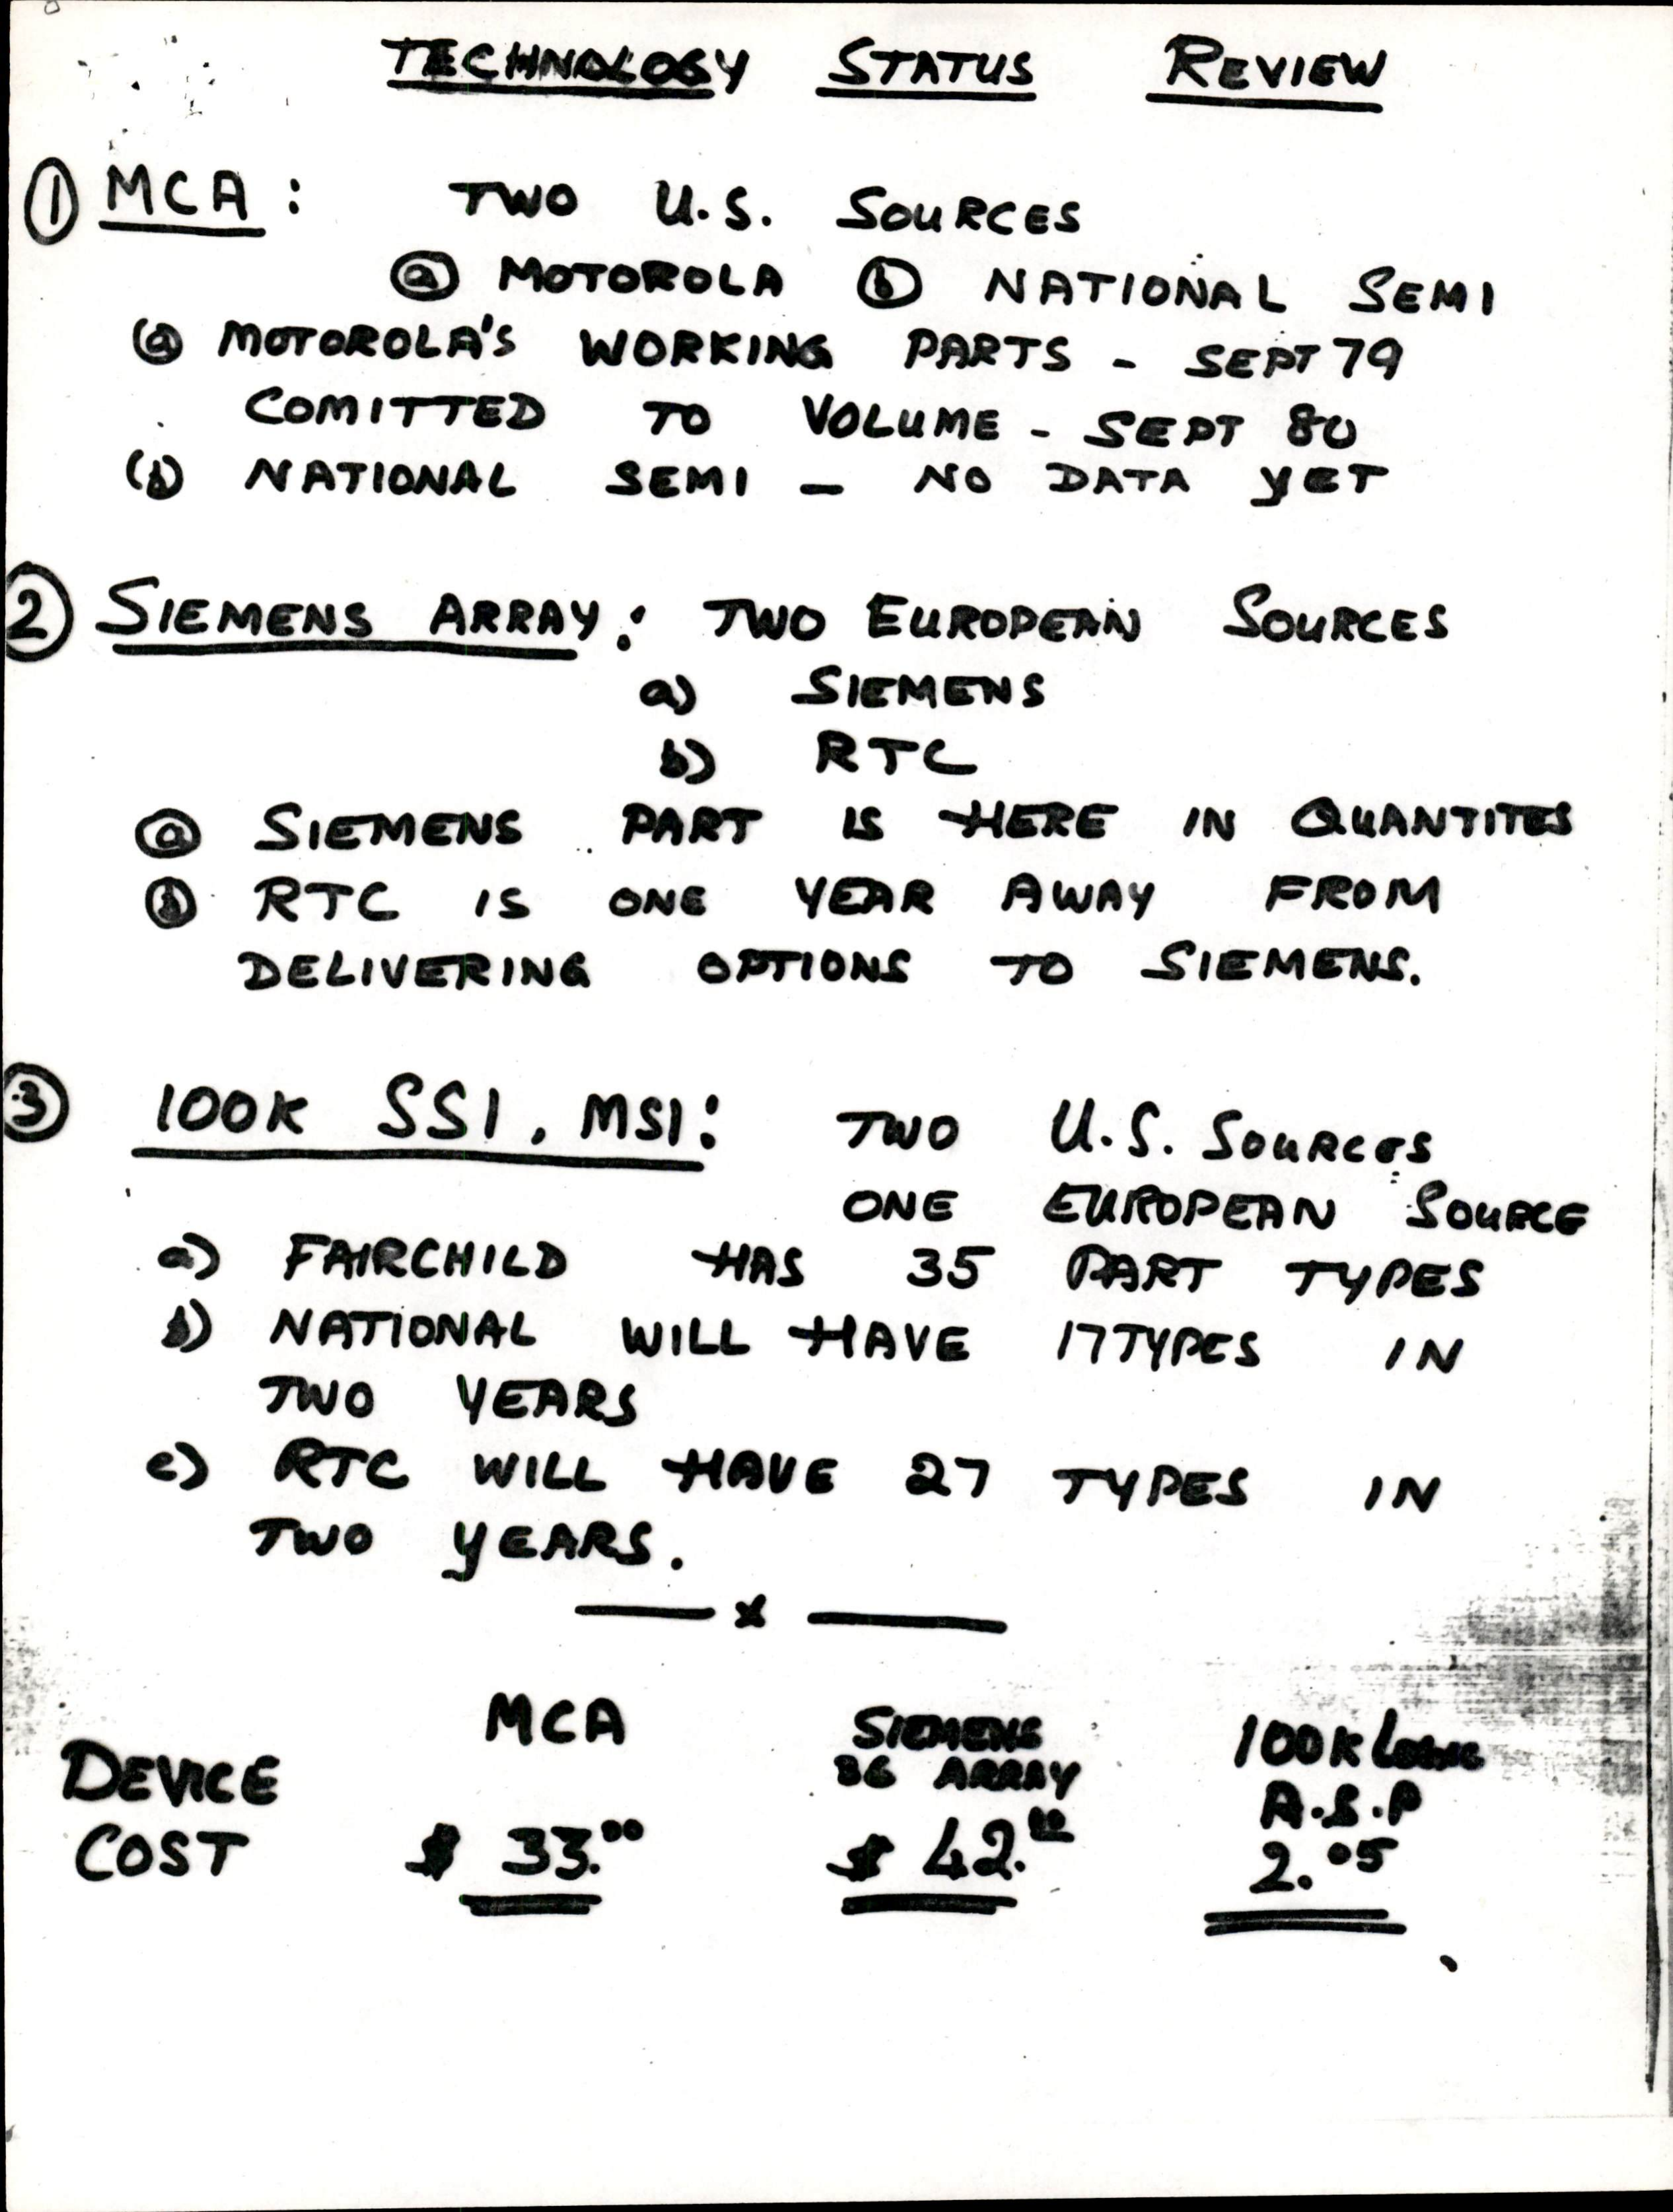 TECHNOLOGY STATUS REVIEW
① MCA : TWO U.S. SOURCES
ⓐ MOTOROLA ⓑ NATIONAL SEMI
(a) MOTOROLA'S WORKING PARTS - SEPT 79
COMITTED TO VOLUME - SEPT 80
(b) NATIONAL SEMI - NO DATA YET
② SIEMENS ARRAY : TWO EUROPEAN SOURCES
a) SIEMENS
b) RTC
ⓐ SIEMENS PART IS HERE IN QUANTITES
ⓑ RTC IS ONE YEAR AWAY FROM
DELIVERING OPTIONS TO SIEMENS.
③ 100K SSI, MSI : TWO U.S. SOURCES
ONE EUROPEAN SOURCE
a) FAIRCHILD HAS 35 PART TYPES
b) NATIONAL WILL HAVE 17 TYPES IN
TWO YEARS
c) RTC WILL HAVE 27 TYPES IN
TWO YEARS.
— x —
MCA SIEMENS 100K LOGIC
DEVICE ARRAY A.S.P
COST $ 33.00 $ 42.00 2.05